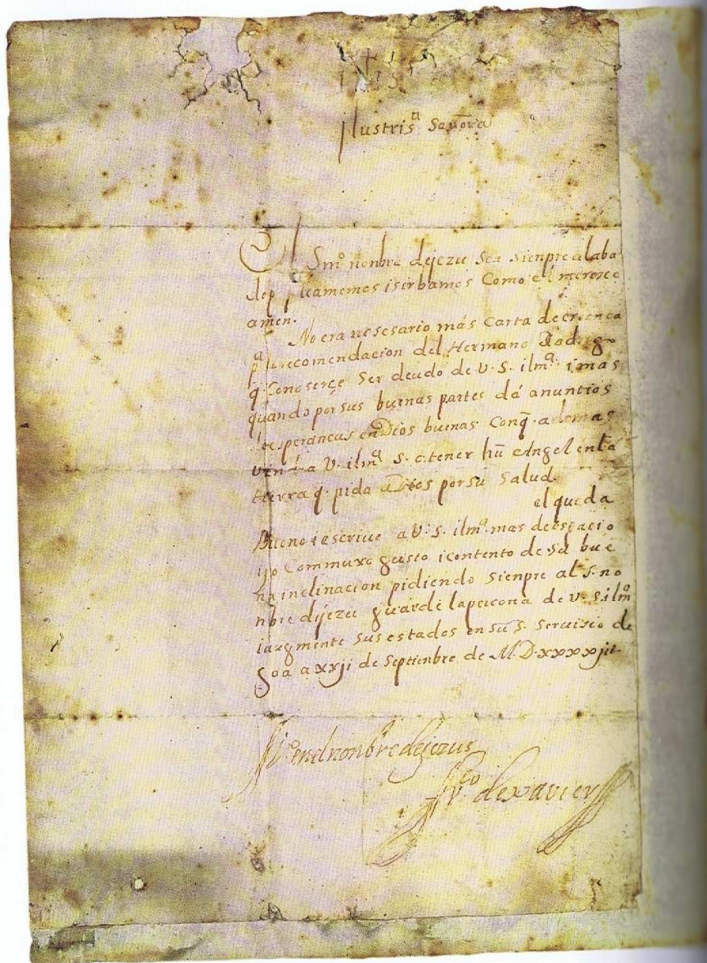 Ilustris.ª Señora
El Sm.º nonbre dejezu sea sienpre alaba
do p amemos i sirbamos Como el merece
amen.
No era nesesario más Carta de crenca
p.ª recomendacion del Hermano Rodrigo
q. Conoserçe Ser deudo de V. S. ilm.ª i mas
quando por sus buenas partes dá anuntios
i esperancas en Dios buenas Conq. ademas
a V. ilm.ª S. tener hũ Angel enla
tierra q. pida a Dios por sú Salud.
el queda
Bueno i escrive a V. S. ilm.ª mas de espacio
yo Commuxo gusto i contento de sú bue
na inclinacion pidiendo sienpre al s. no
nbre dijezu guarde la percona de V. S. ilm.ª
i augmente sus estados en sú S. Servisio de
Goa a xxij de Septienbre de M.D.xxxxjii
enelnonbre dejezus
Fr.co dexavier